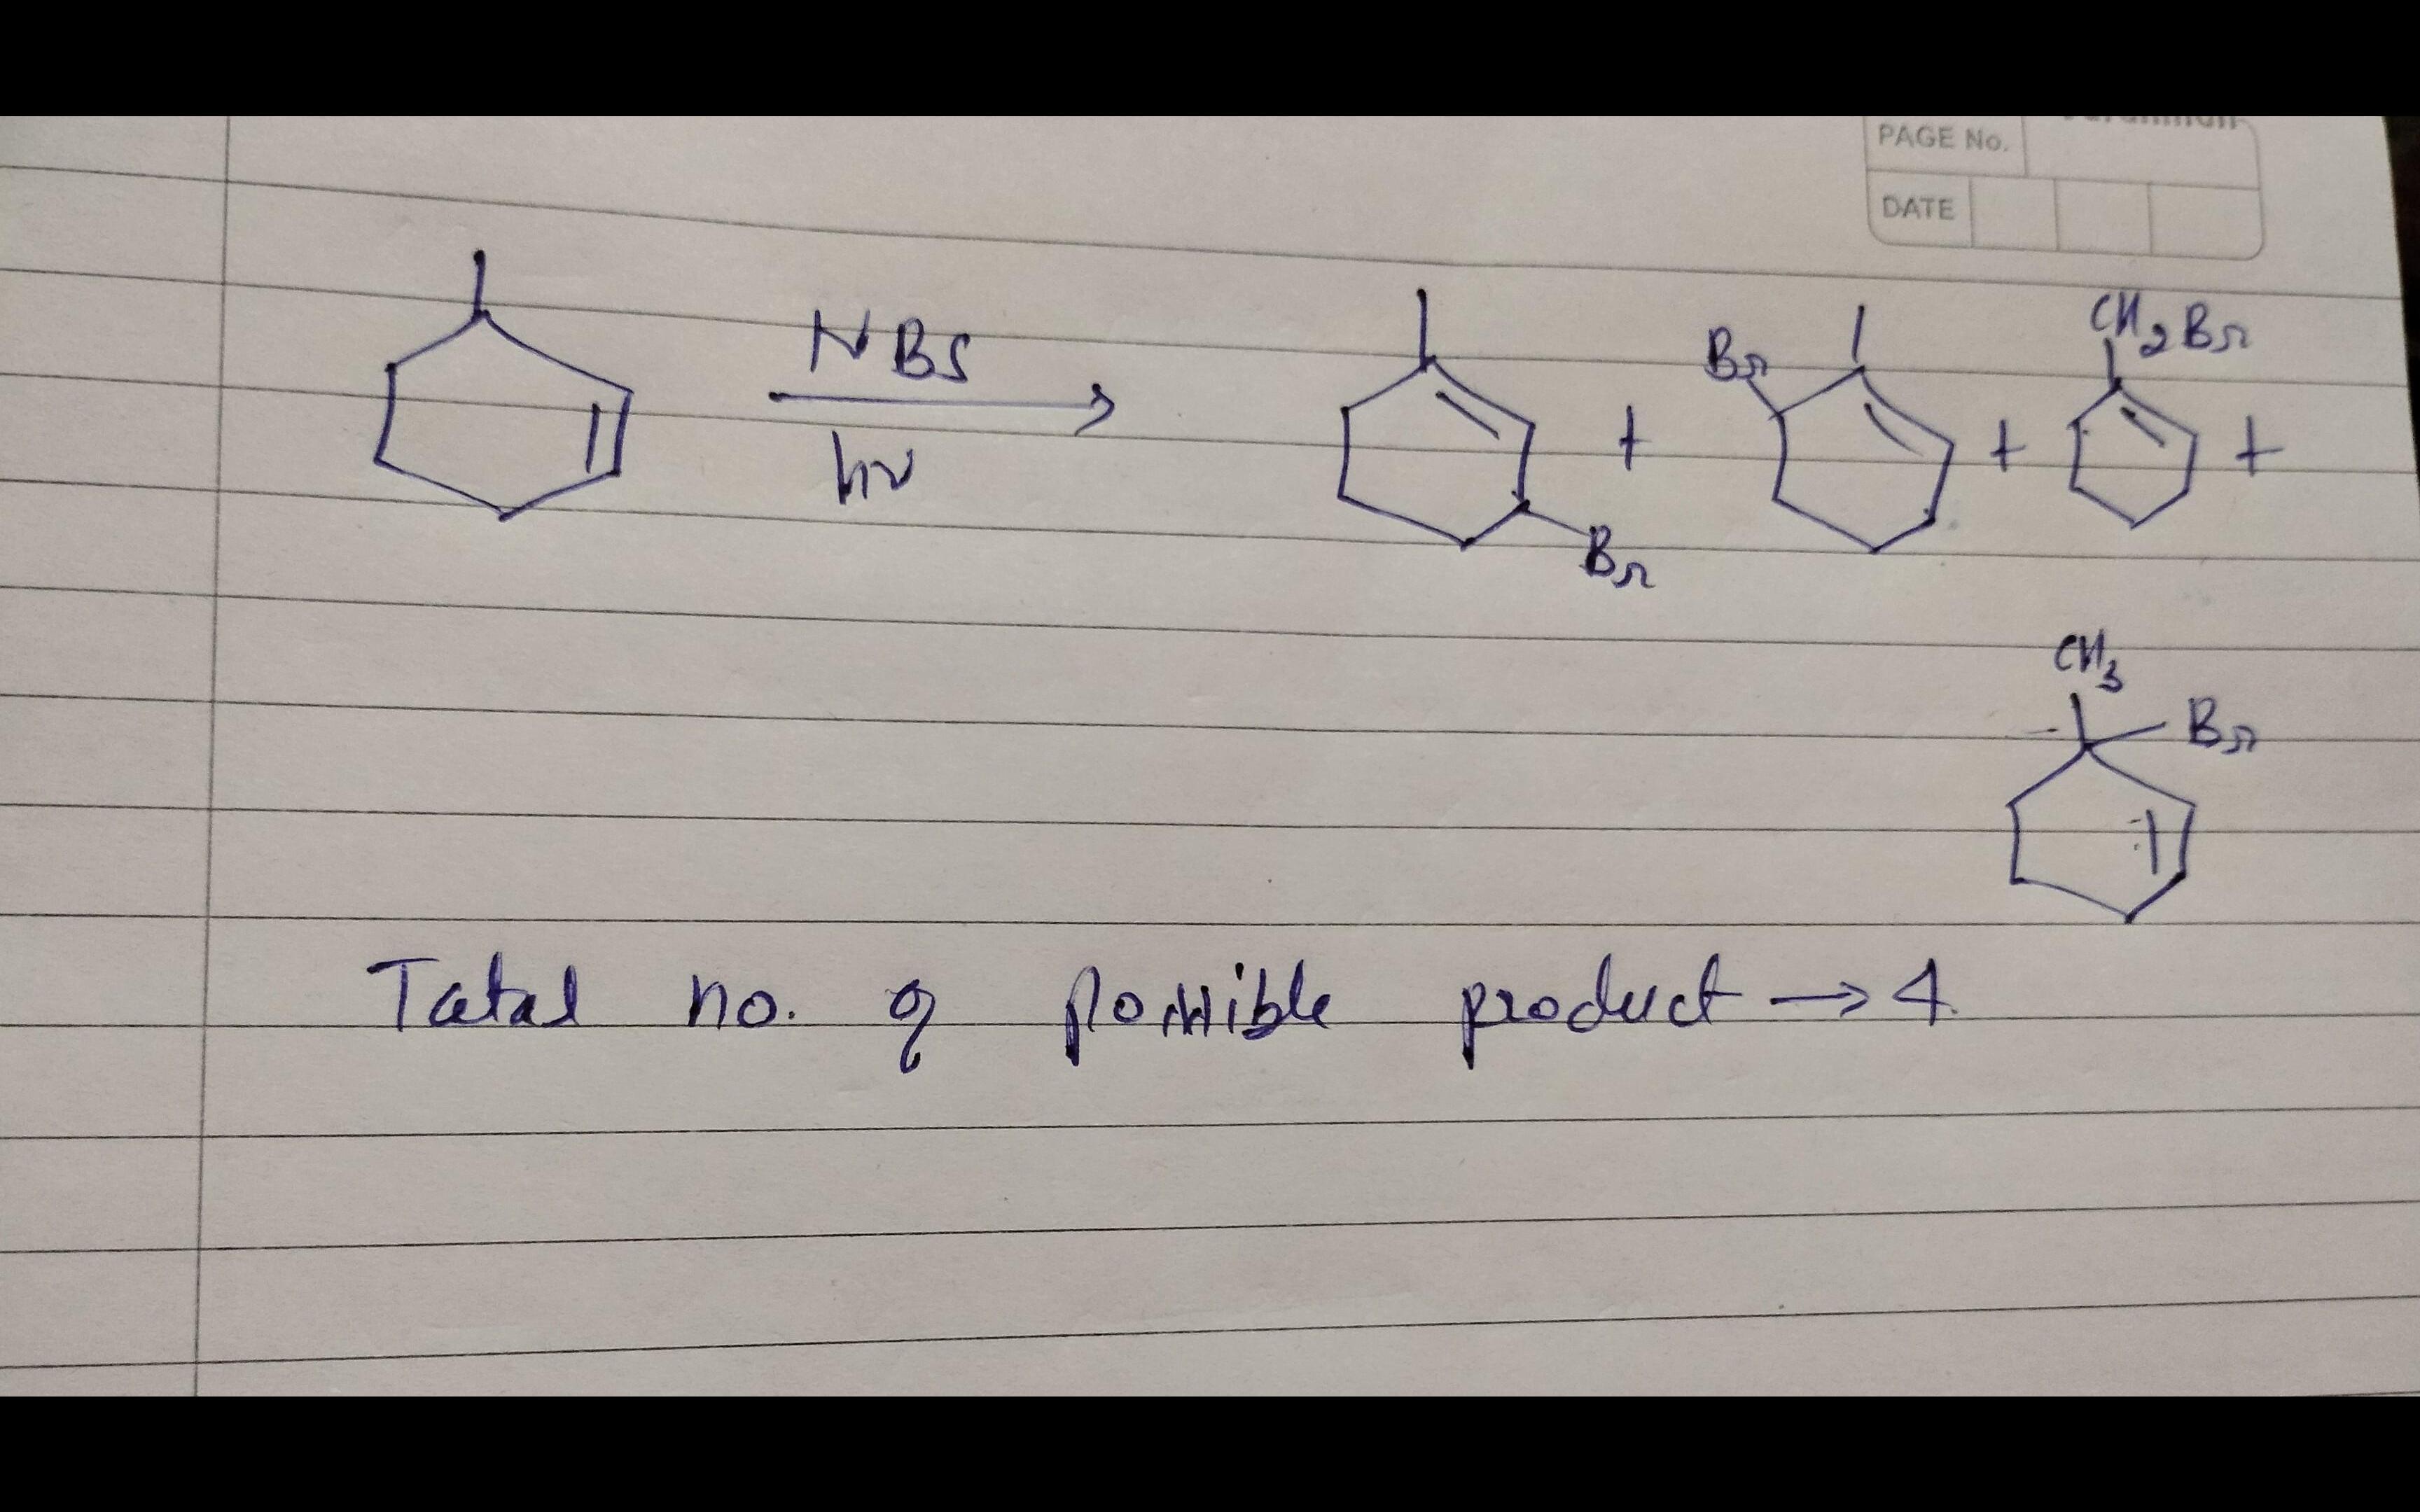 PAGE No.
DATE
NBS
hν
Br
Br
CH2Br
+ + +
CH3
Br
Total no. of possible product → 4